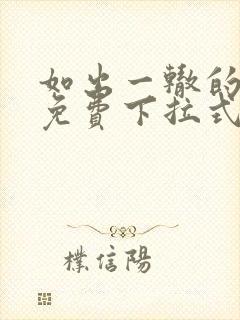 如出一辙的
免費下拉式
樸信陽